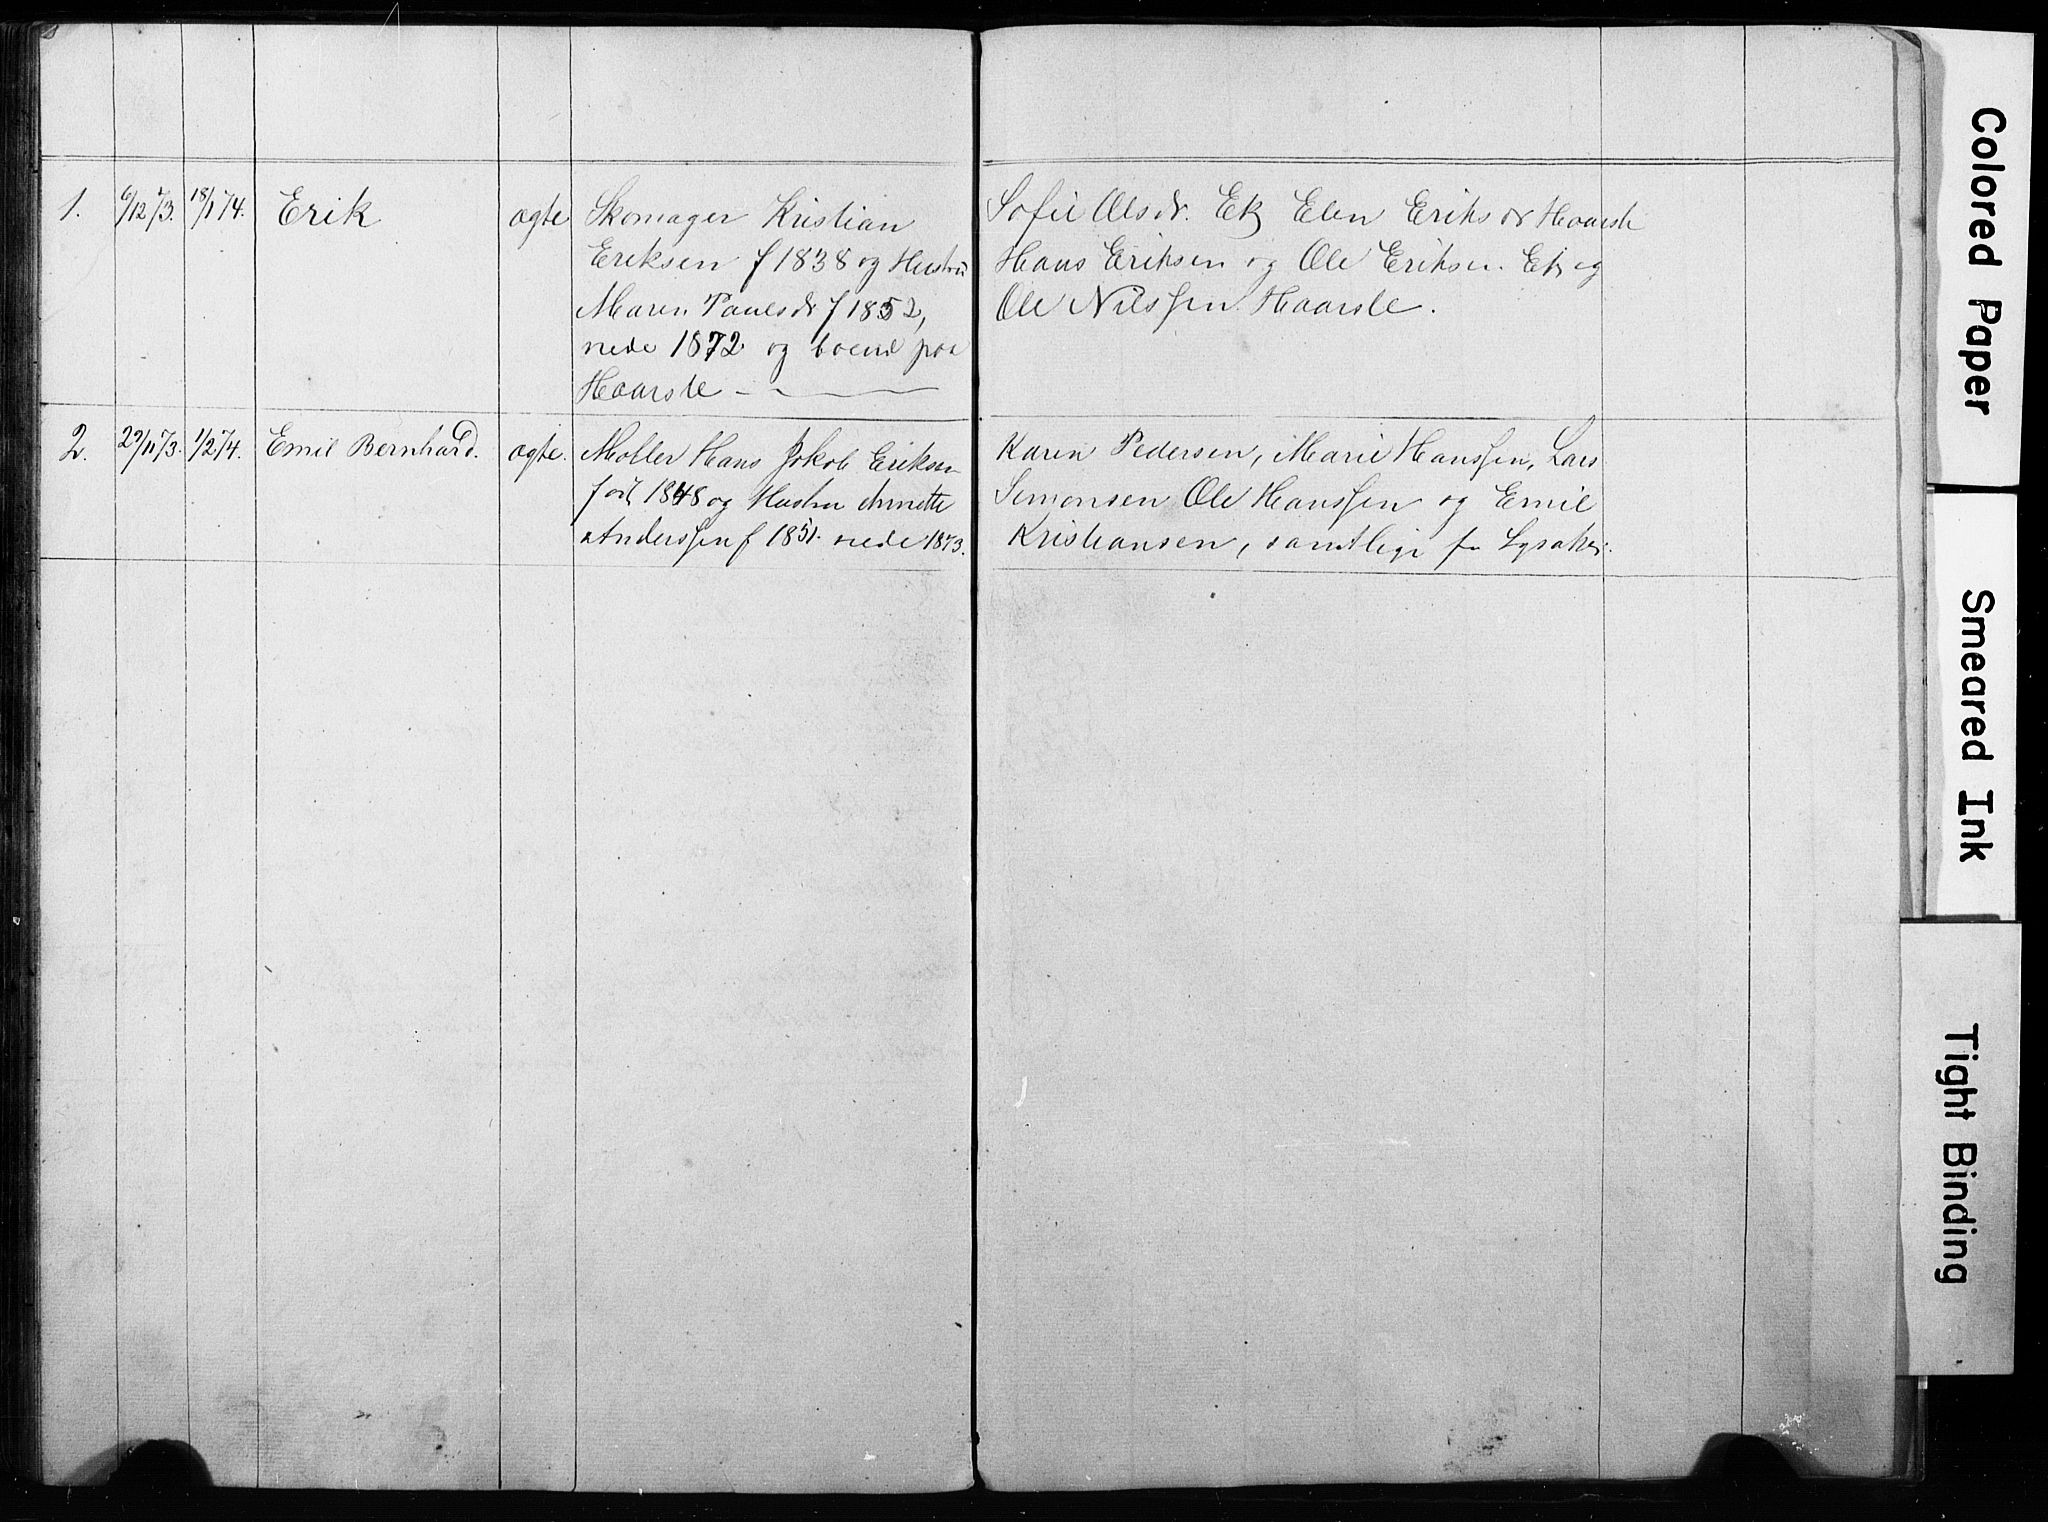 1. 6/12 73. 18/1 74. Erik ægte Skomager Kristian
Eriksen f 1838 og Hustru
Maren Paulsdr f 1852,
viede 1872 og boend paa
Haarsle
Sofie Olsdr. Ek Elen Eriksdr Haarsle
Hans Eriksen og Ole Eriksen Ek og
Ole Nilssen Haarsle.
2. 29/11 73. 1/2 74. Emil Bernhard. ægte. Møller Hans Jakob Eriksen
født 1848 og Hustru
Anderssen f 1851. viede 1873.
Karen Pedersen, Marie Hanssen, Lars
Simonsen Ole Hanssen og Emil
Kristiansen, samtlige fra Lysaker.
Colored Paper
Smeared Ink
Tight Binding